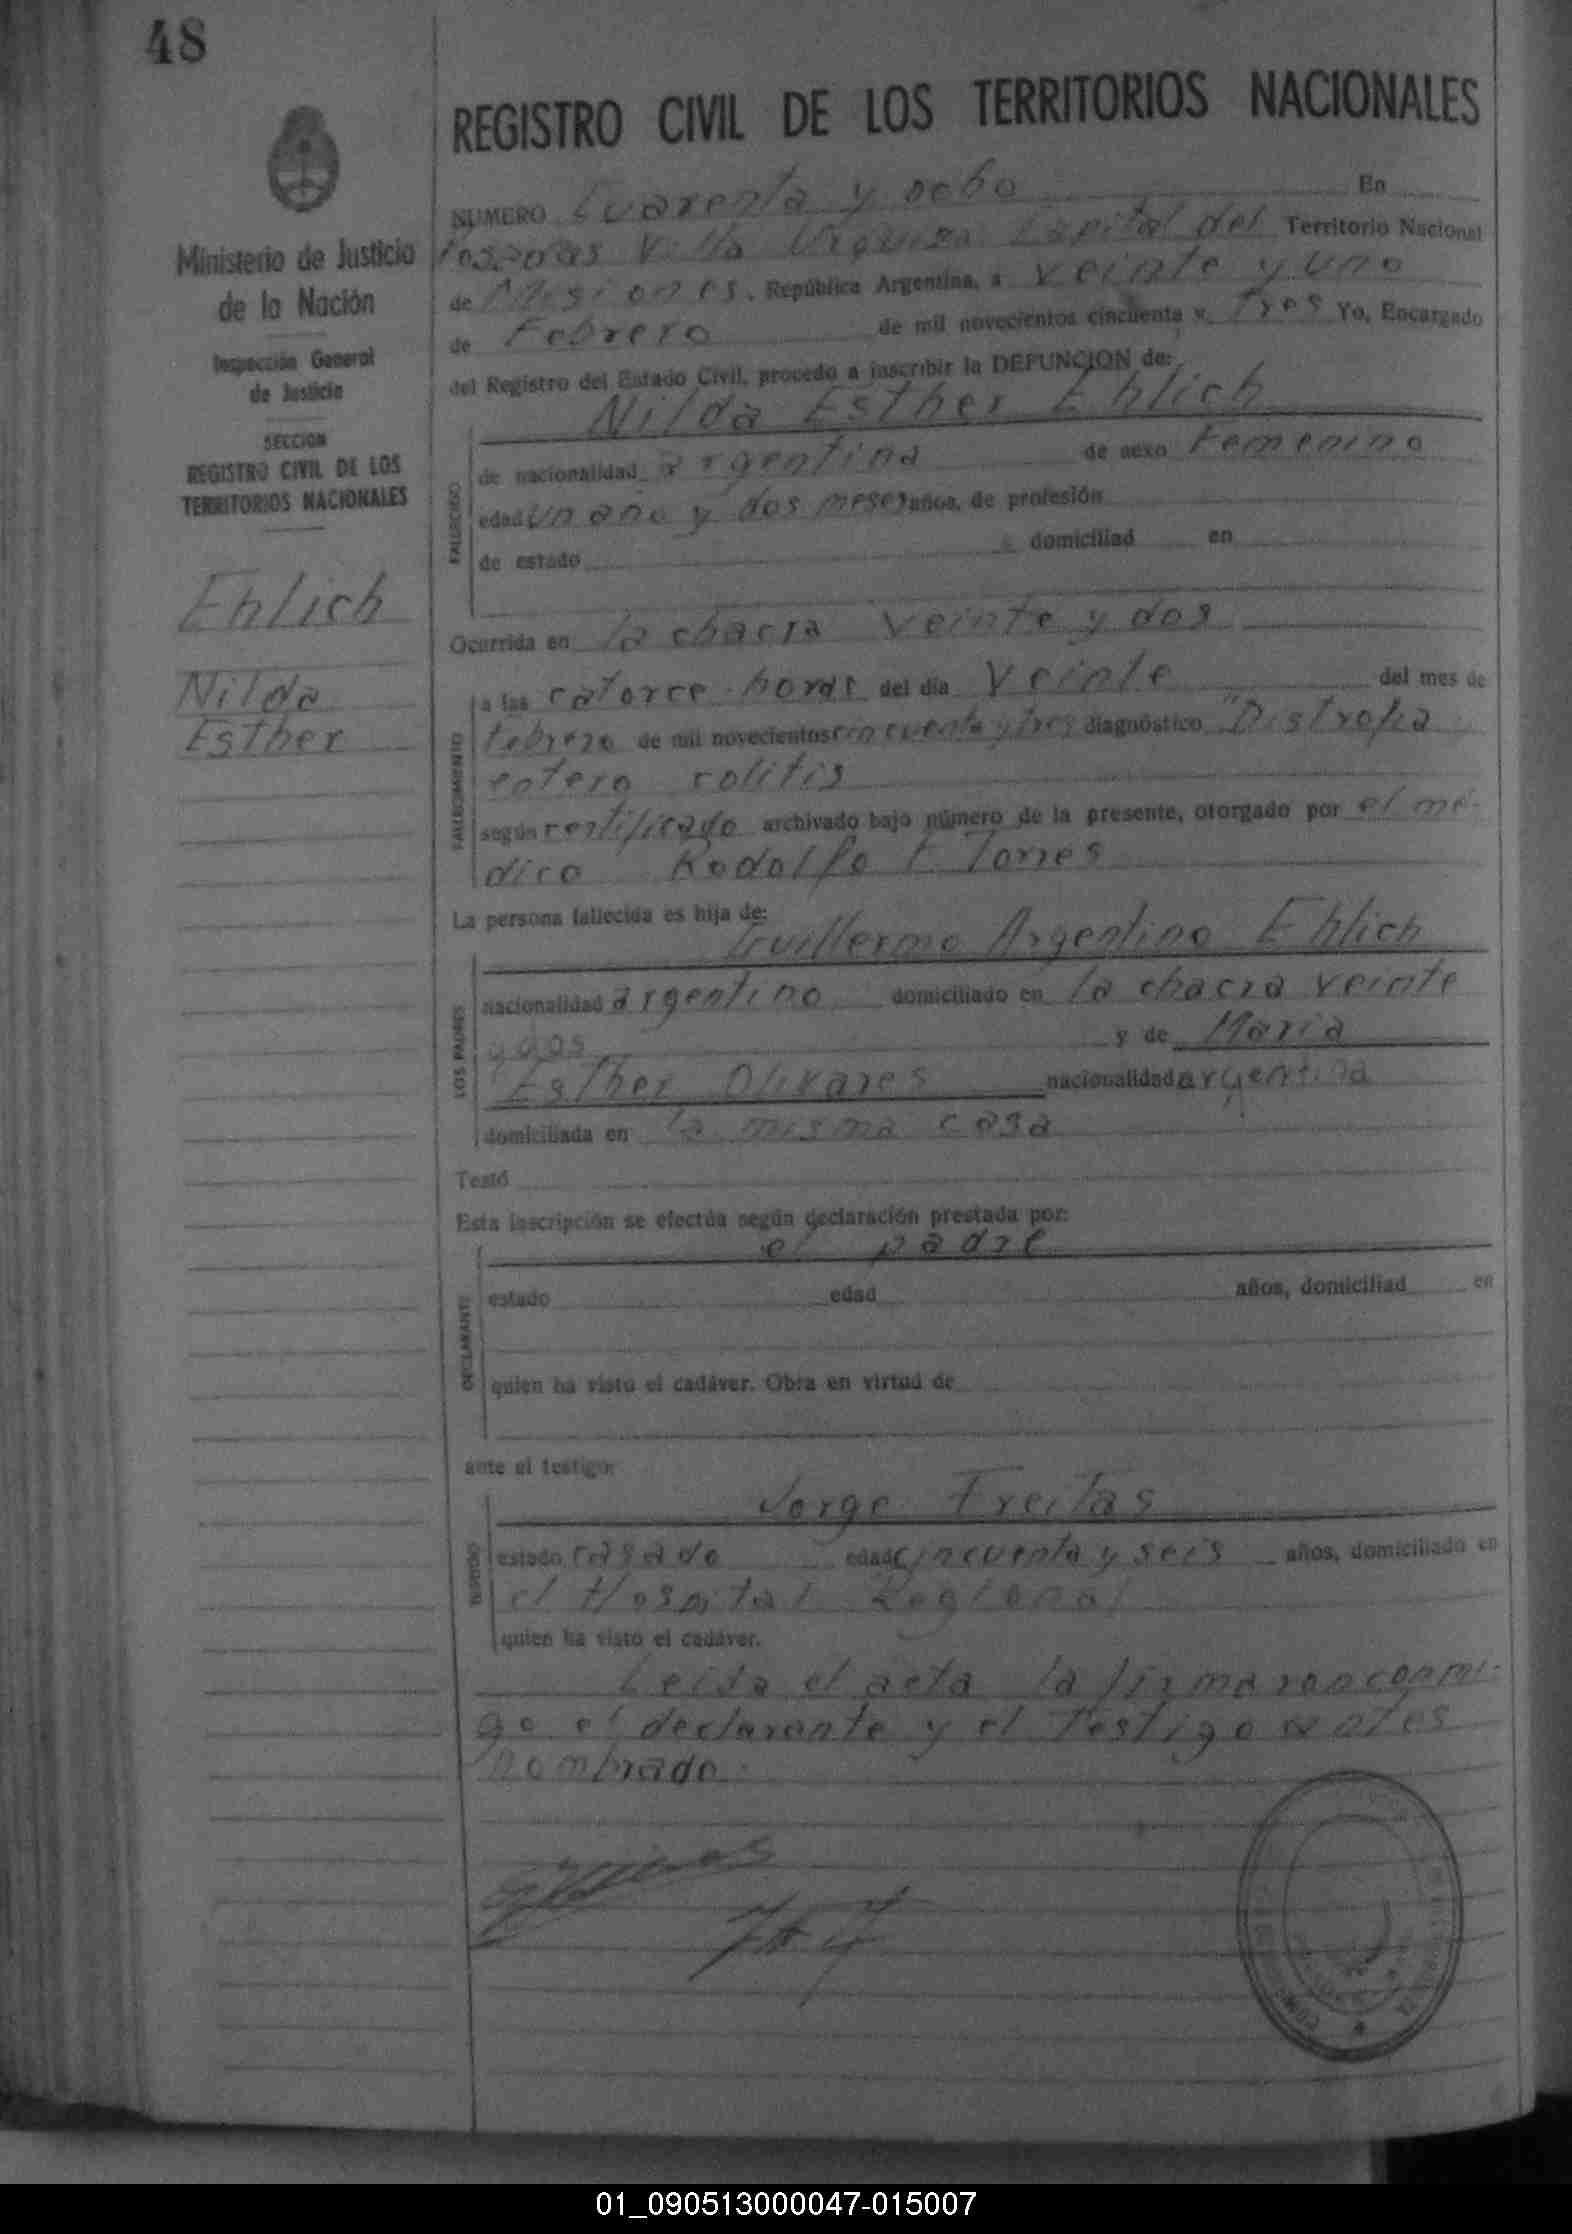 48
REGISTRO CIVIL DE LOS TERRITORIOS NACIONALES
Ministerio de Justicia
de la Nación
Inspección General
de Justicia
SECCION
REGISTRO CIVIL DE LOS
TERRITORIOS NACIONALES
Ehlich
Nilda
Esther
NUMERO Cuarenta y ocho En
Posadas Villa Urquiza Capital del Territorio Nacional
de Misiones, República Argentina, a veinte y uno
de Febrero de mil novecientos cincuenta y tres Yo, Encargado
del Registro del Estado Civil, procedo a inscribir la DEFUNCION de:
Nilda Esther Ehlich
FALLECIDO
de nacionalidad argentina de sexo Femenino
edad un año y dos meses años, de profesión
de estado domiciliad en
Ocurrida en la chacra veinte y dos
FALLECIMIENTO
a las catorce horas del día Veinte del mes de
febrero de mil novecientos cincuenta y tres diagnóstico "Distrofia
entero colitis
según certificado archivado bajo número de la presente, otorgado por el mé-
dico Rodolfo F. Torres
La persona fallecida es hija de:
Guillermo Argentino Ehlich
LOS PADRES
nacionalidad argentino domiciliado en la chacra veinte
y dos y de Maria
Esther Olivares nacionalidad argentina
domiciliada en la misma casa
Testó
Esta inscripción se efectúa según declaración prestada por:
el padre
DECLARANTE
estado edad años, domiciliad en
quien ha visto el cadáver. Obra en virtud de
ante el testigo:
Jorge Freitas
TESTIGO
estado casado edad cincuenta y seis años, domiciliado en
el Hospital Regional
quien ha visto el cadáver.
Leida el acta la firmaron conmi-
go el declarante y el testigo antes
nombrado.
01_090513000047-015007